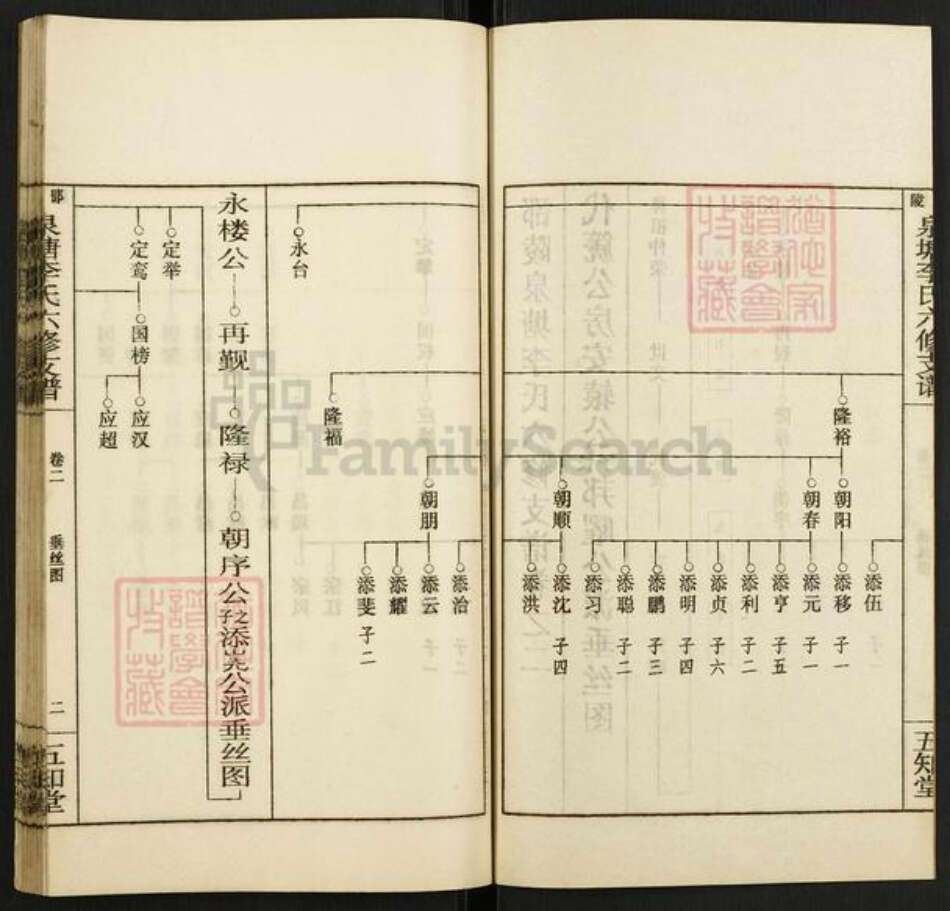 陵
泉塘李氏六修支谱
五知堂
隆裕
朝阳
朝春
朝顺
添伍
添移 子一
添元 子一
添亨 子五
添利 子二
添贞 子六
添明 子四
添鹏 子三
添聪 子二
添习
添沈 子四
添洪
添治
添云
添耀
添斐 子二
朝朋
隆福
永台
永楼公 再觐 隆禄 朝序公之子添尧公派垂丝图
定举
定鸾
国榜
应汉
应超
邵
泉塘李氏六修支谱
卷二
垂丝图
二
五知堂
FamilySearch